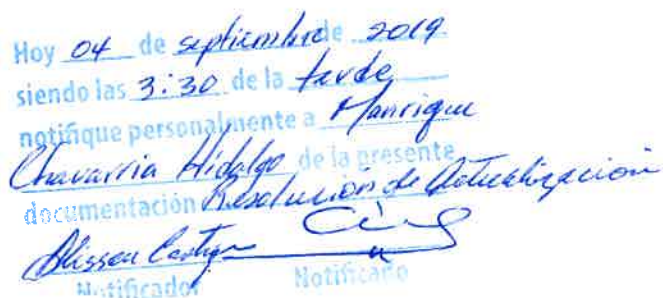 Hoy 04 de septiembre de 2019
siendo las 3:30 de la tarde
notifique personalmente a Manrique
Chavarria Hidalgo de la presente
documentación Resolución de Actualización
Alisson
Notificador Notificado